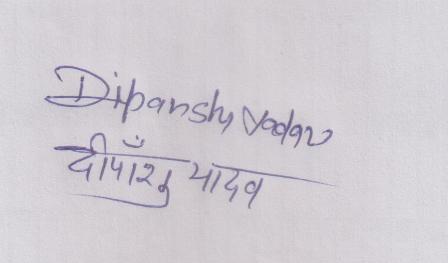 Dipanshu Yadav
दीपाँशु यादव